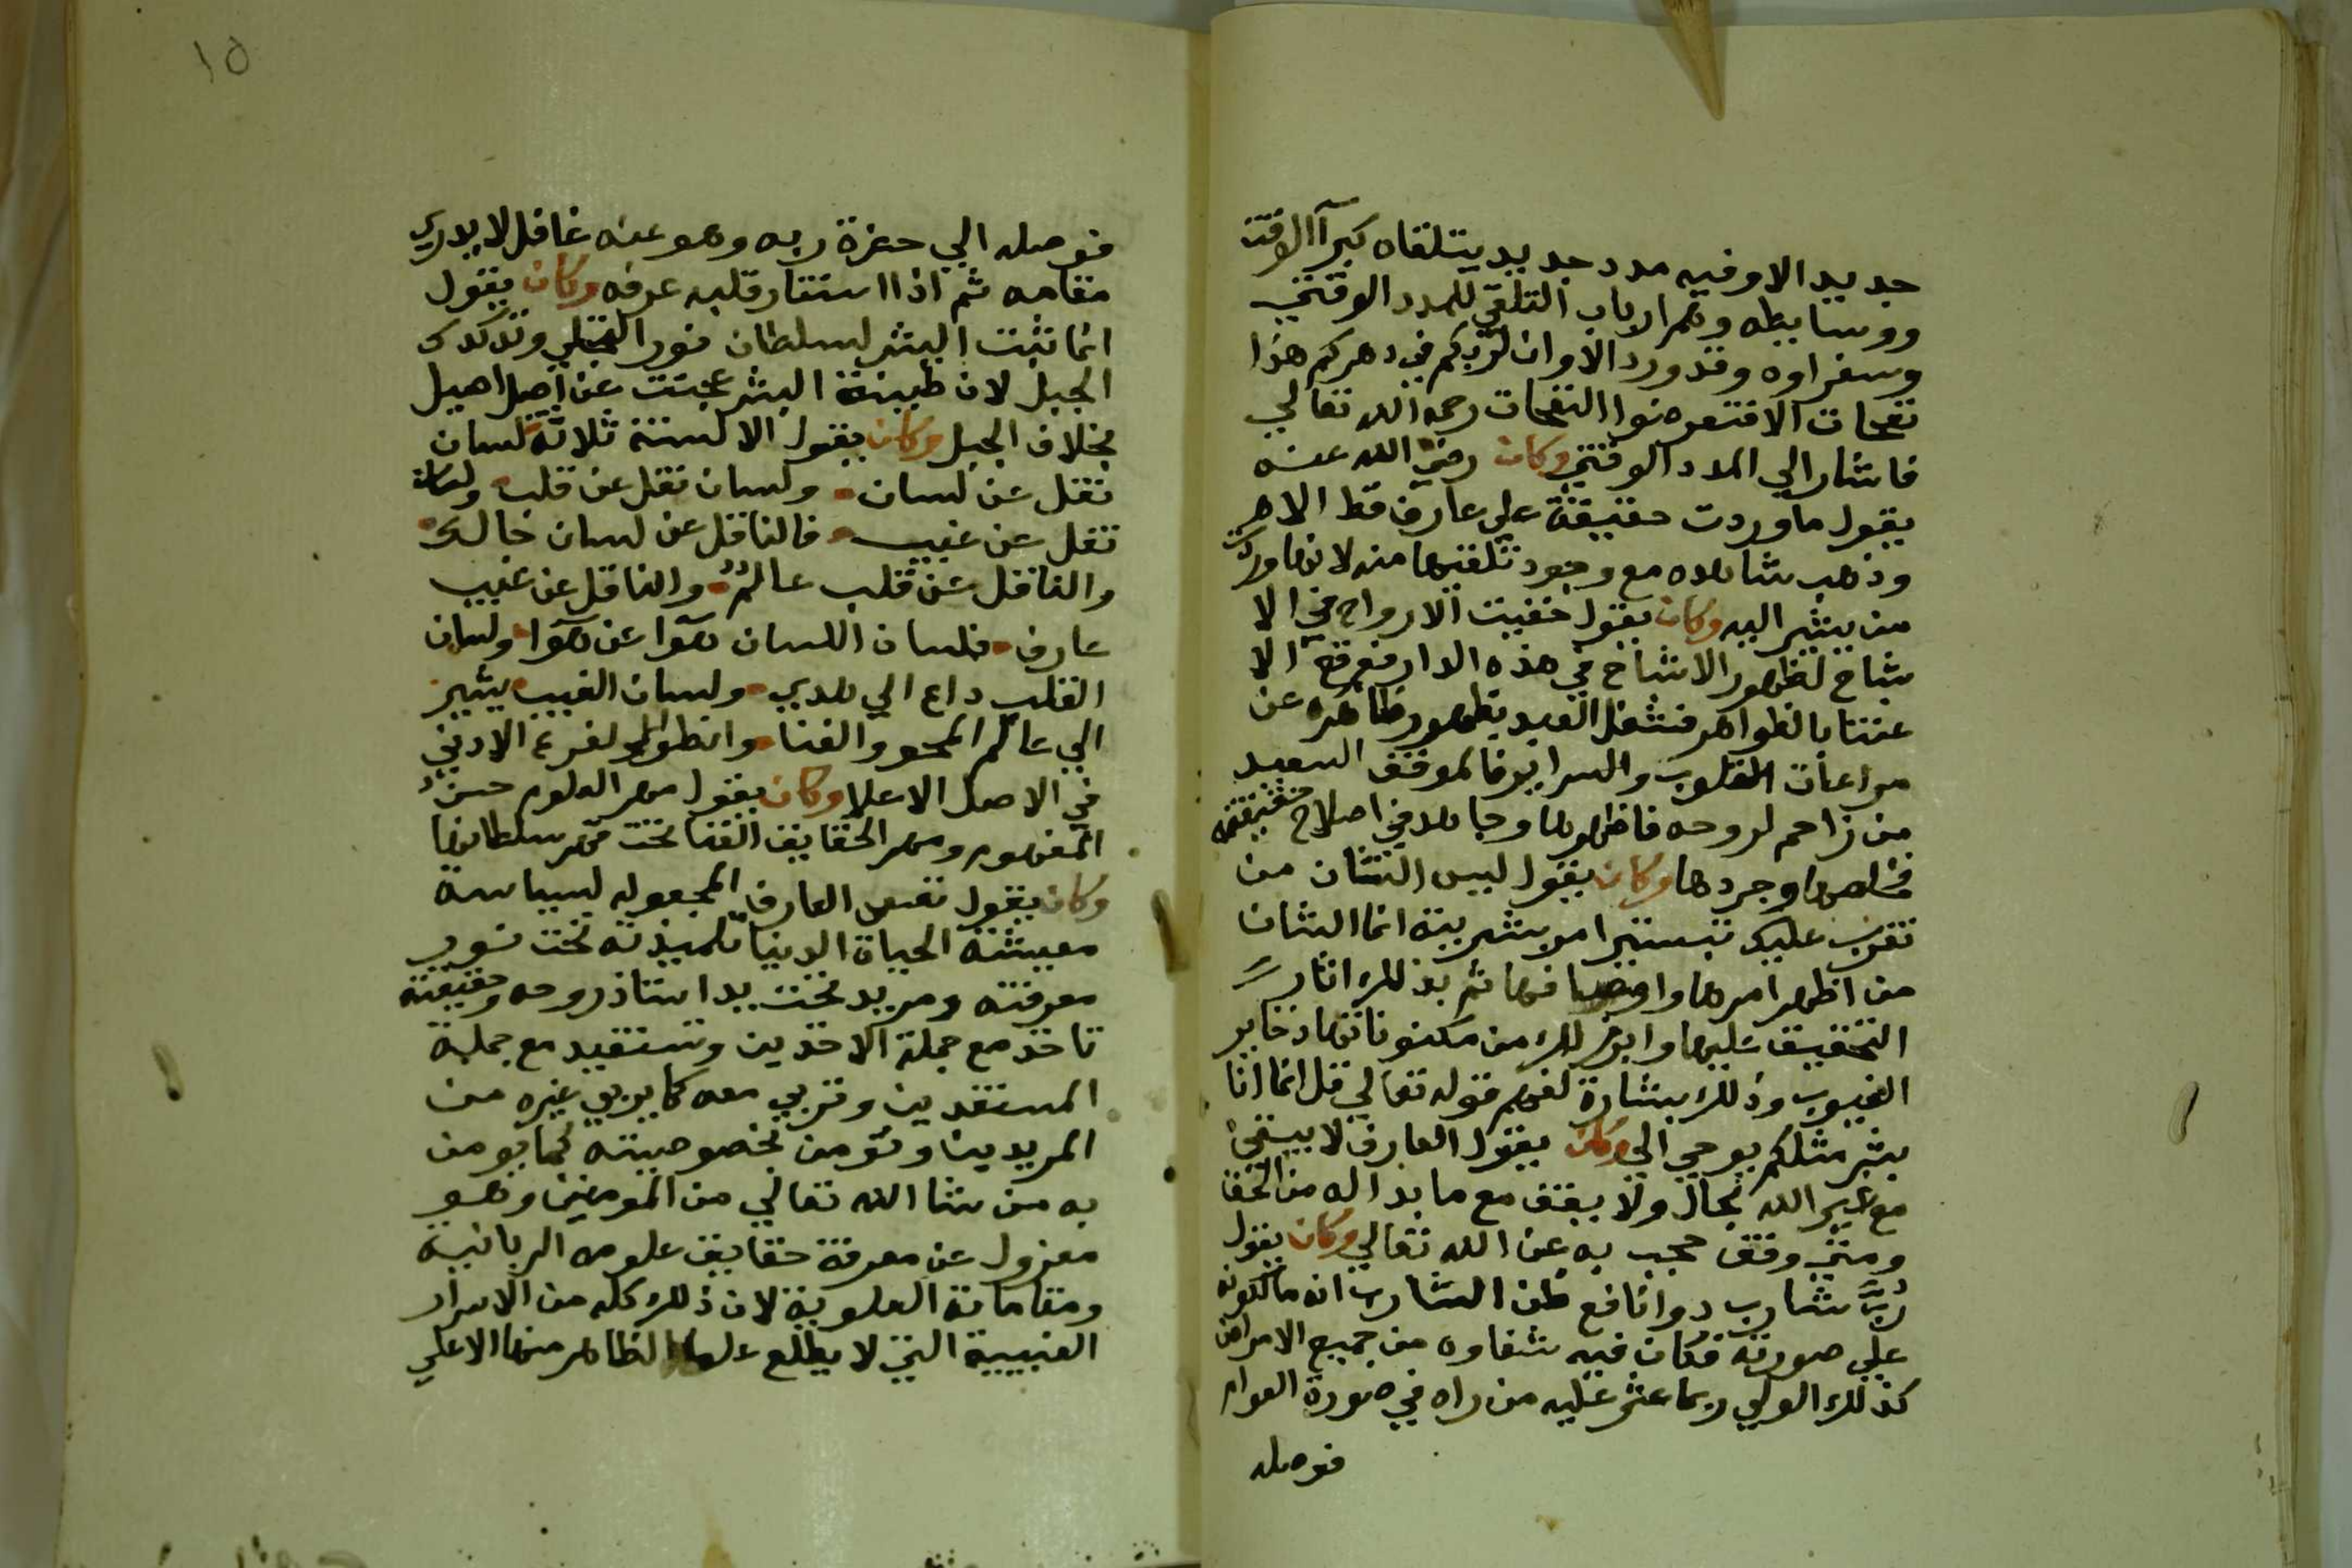 جديد الا وفيه مدد جديد يتلقاه كبرآ الوقت
ووسايطه وهم ارباب التلقي للمدد الوقتي
وسفراوه وقد ورد الا وان لربكم في دهركم هذا
نفحات الا فتعرضوا النفحات رحمة الله تعالي
فاشار الي المدد الوقتي وكان رضي الله عنه
يقول ما وردت حقيقة علي عارف قط الا هر
وذهب شاهده مع وجود تلقيها منه لانها وردت
من يشير اليه وكان يقول خفيت الارواح في الا
شباح لظهور الاشباح في هذه الدار فوقع الا
عتنا بالظواهر فشغل العبد بظهور ظاهره عن
مراعات القلوب والسراير فالموفق السعيد
من زاحم لروحه فاظهرها وجاهد في اصلاح حقيقته
فخلصها وجردها وكان يقول ليس الشان من
تقرب عليك تيسير امر بشريته انما الشان
من اظهر امرها واوضحها فهما ثم بذلك اثار
التحقيق عليها وابرز لك من مكنوناتها ذخاير
الغيوب وذلك بشارة لفهم قوله تعالي قل انما انا
بشر مثلكم يوحي الي وكان يقول العارف لا يبقي
مع غير الله بحال ولا يقف مع ما بدا له من الحقا
ومتي وقف حجب به عن الله تعالي وكان يقول
رُبَّ شارب دوا نافع ظن الشارب انه مالكونه
علي صورته فكان فيه شفاوه من جميع الامراض
كذلك الولي ربما عثر عليه من راه في صورة العوام
فوصله
١٥
فوصله الي حضرة ربه وهو عنه غافل لا يدري
مقامه ثم اذا استنار قلبه عرفه وكان يقول
انما ثبت البشر لسلطان نور التجلي وتدكدك
الجبل لان طينة البشر عجنت عن اصل اصيل
بخلاف الجبل وكان يقول الالسنة ثلاثة لسان
نقل عن لسان ولسان نقل عن قلب ولسان
نقل عن غيب فالناقل عن لسان حاكٍ
والناقل عن قلب عالمٌ والناقل عن غيب
عارف فلسان اللسان هوآ عن هوآ ولسان
القلب داع الي هدي ولسان الغيب يشير
الي عالم المحو والفنا وانطوا الفرع الادني
في الاصل الاعلا وكان يقول مهر العلوم حسن
المفهوم ومهر الحقايق الفنا تحت قهر سلطانها
وكان يقول نفس العارف المجعوله لسياسة
معيشة الحياة الدنيا تلميذته تحت نور
معرفته ومريد تحت يد استاذ روحه وحقيقته
تاخذ مع جملة الاخذين وتستفيد مع جملة
المستفدين وتربي معه كما يربي غيره من
المريدين وتومن بخصوصيته كما يومن
به من شا الله تعالي من المومنين وهو
معزول عن معرفة حقايق علومه الربانية
ومقاماته العلوية لان ذلك كله من الاسرار
الغيبية التي لا يطلع عليها الظاهر منها الا علي